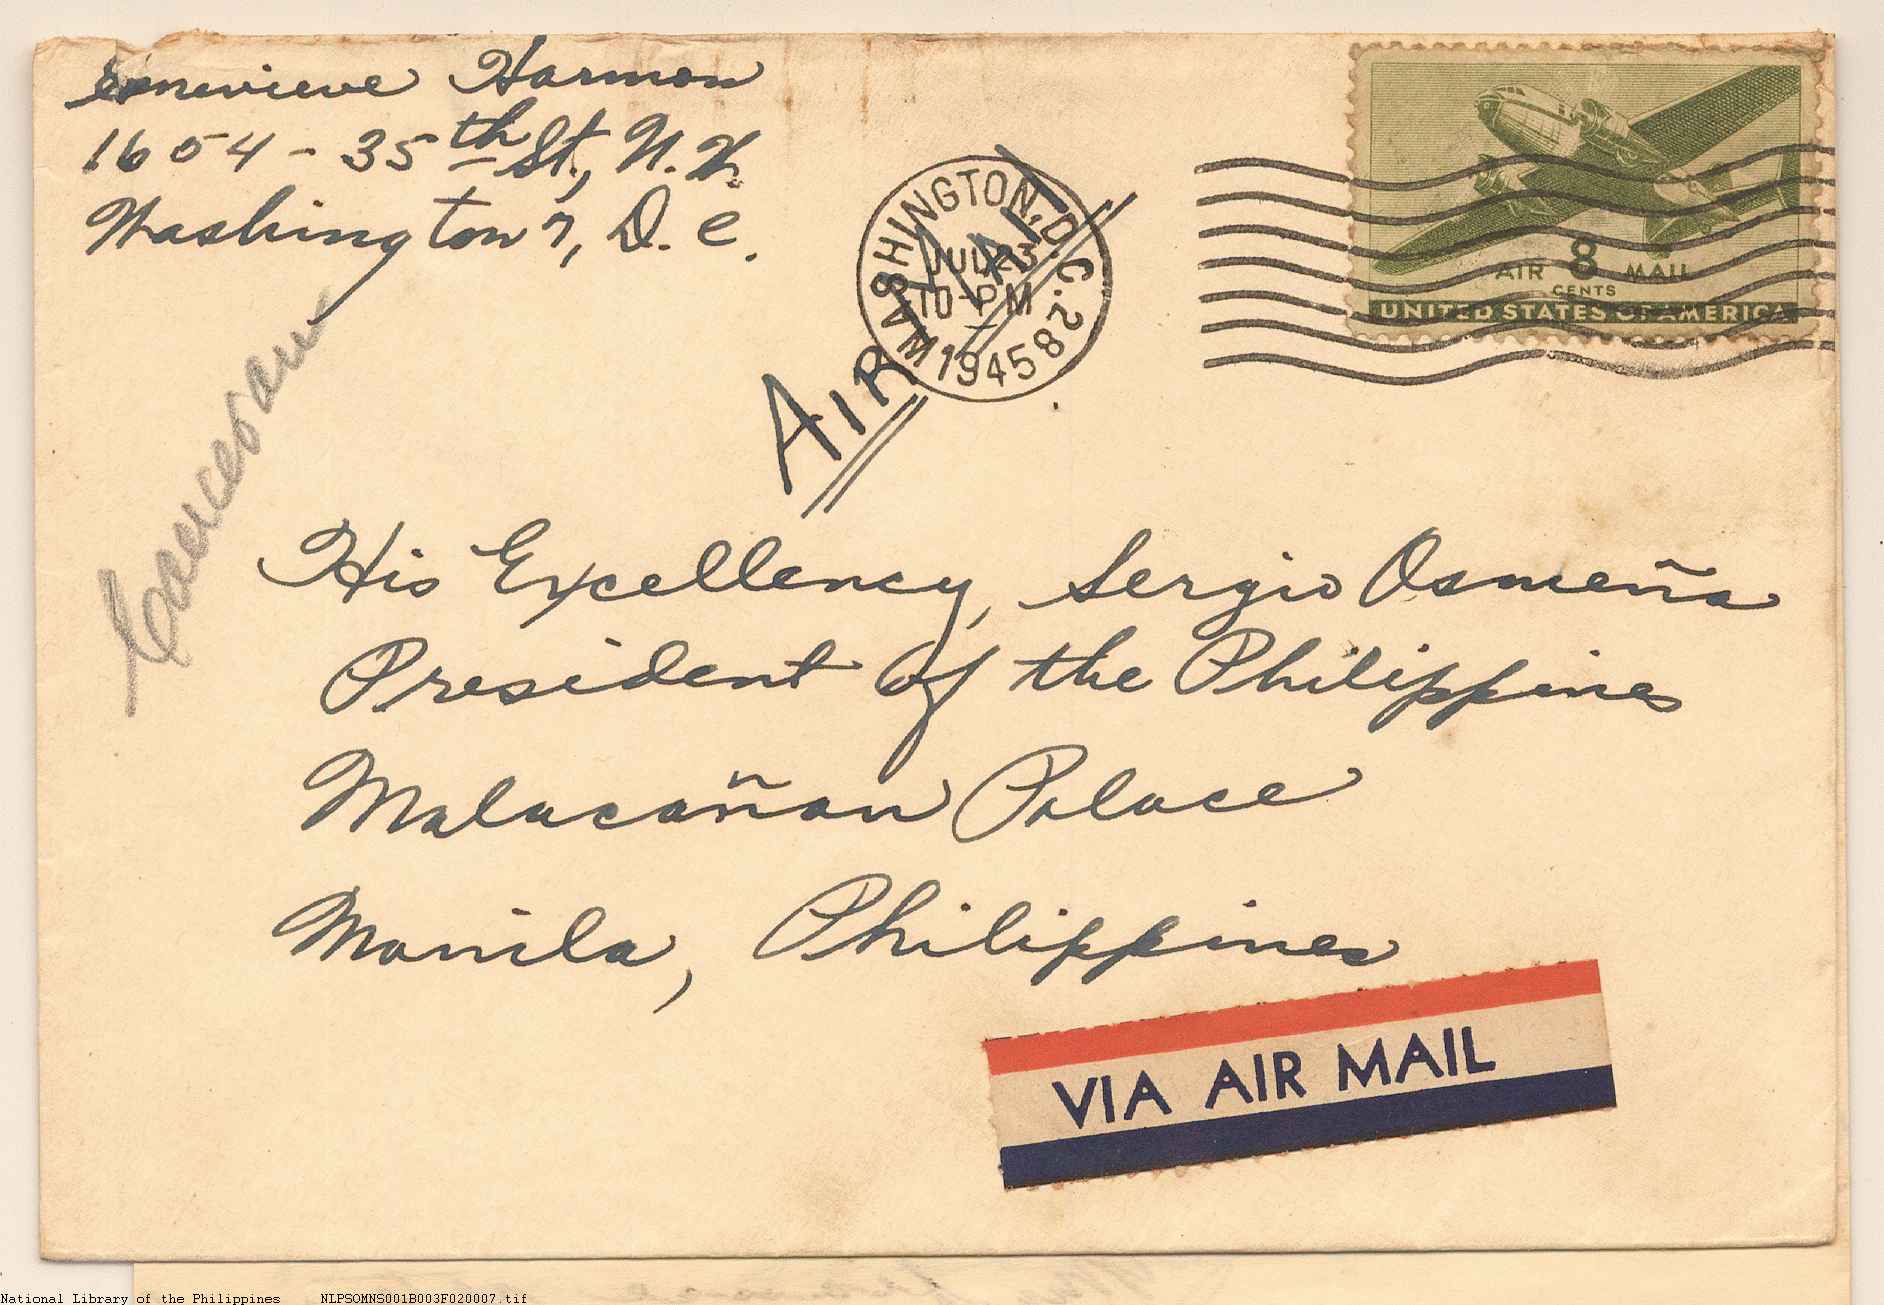 Genevieve Harmon
1654 - 35th St., N.W.
Washington 7, D.C.
WASHINGTON, D.C. 28
JUL 23
10-PM
1945
8
AIR MAIL
AIR 8 MAIL
CENTS
UNITED STATES OF AMERICA
His Excellency, Sergio Osmeña
President of the Philippines
Malacañan Palace
Manila, Philippines
VIA AIR MAIL
National Library of the Philippines NLPSOMNS001B003F020007.tif